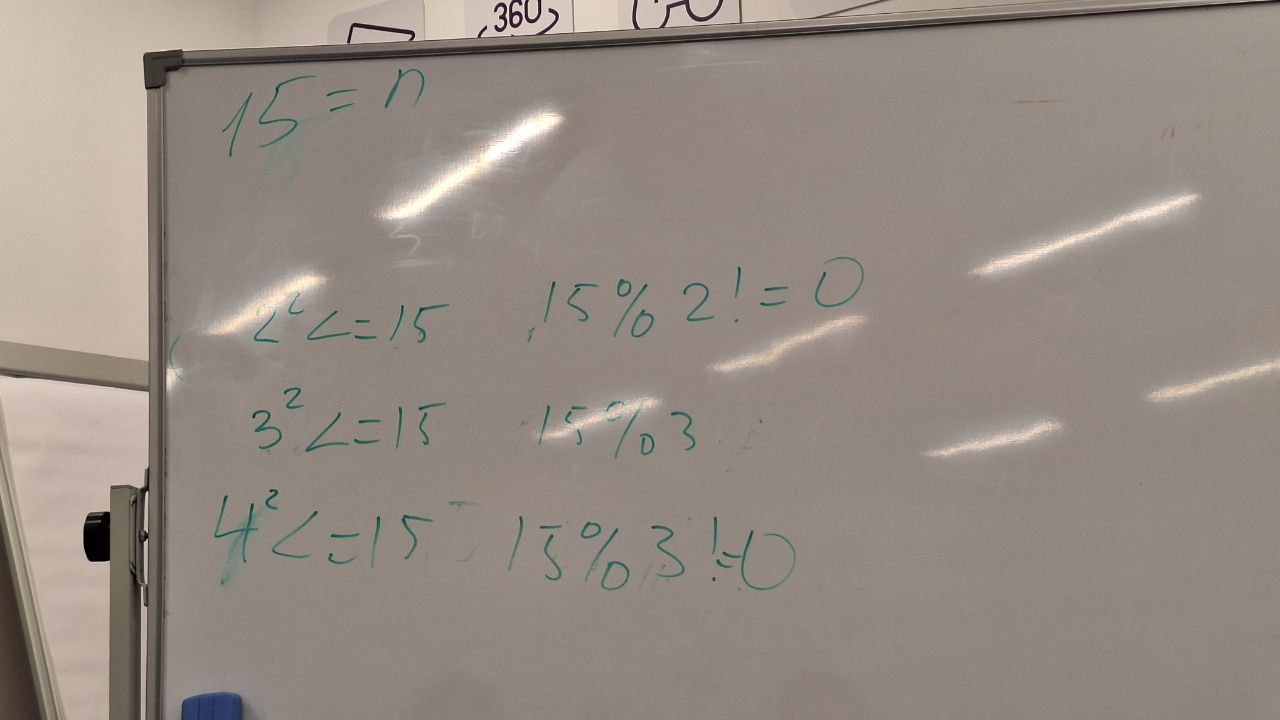 360
15 = n
2² <= 15 15 % 2 != 0
3² <= 15 15 % 3
4² <= 15 15 % 3 != 0